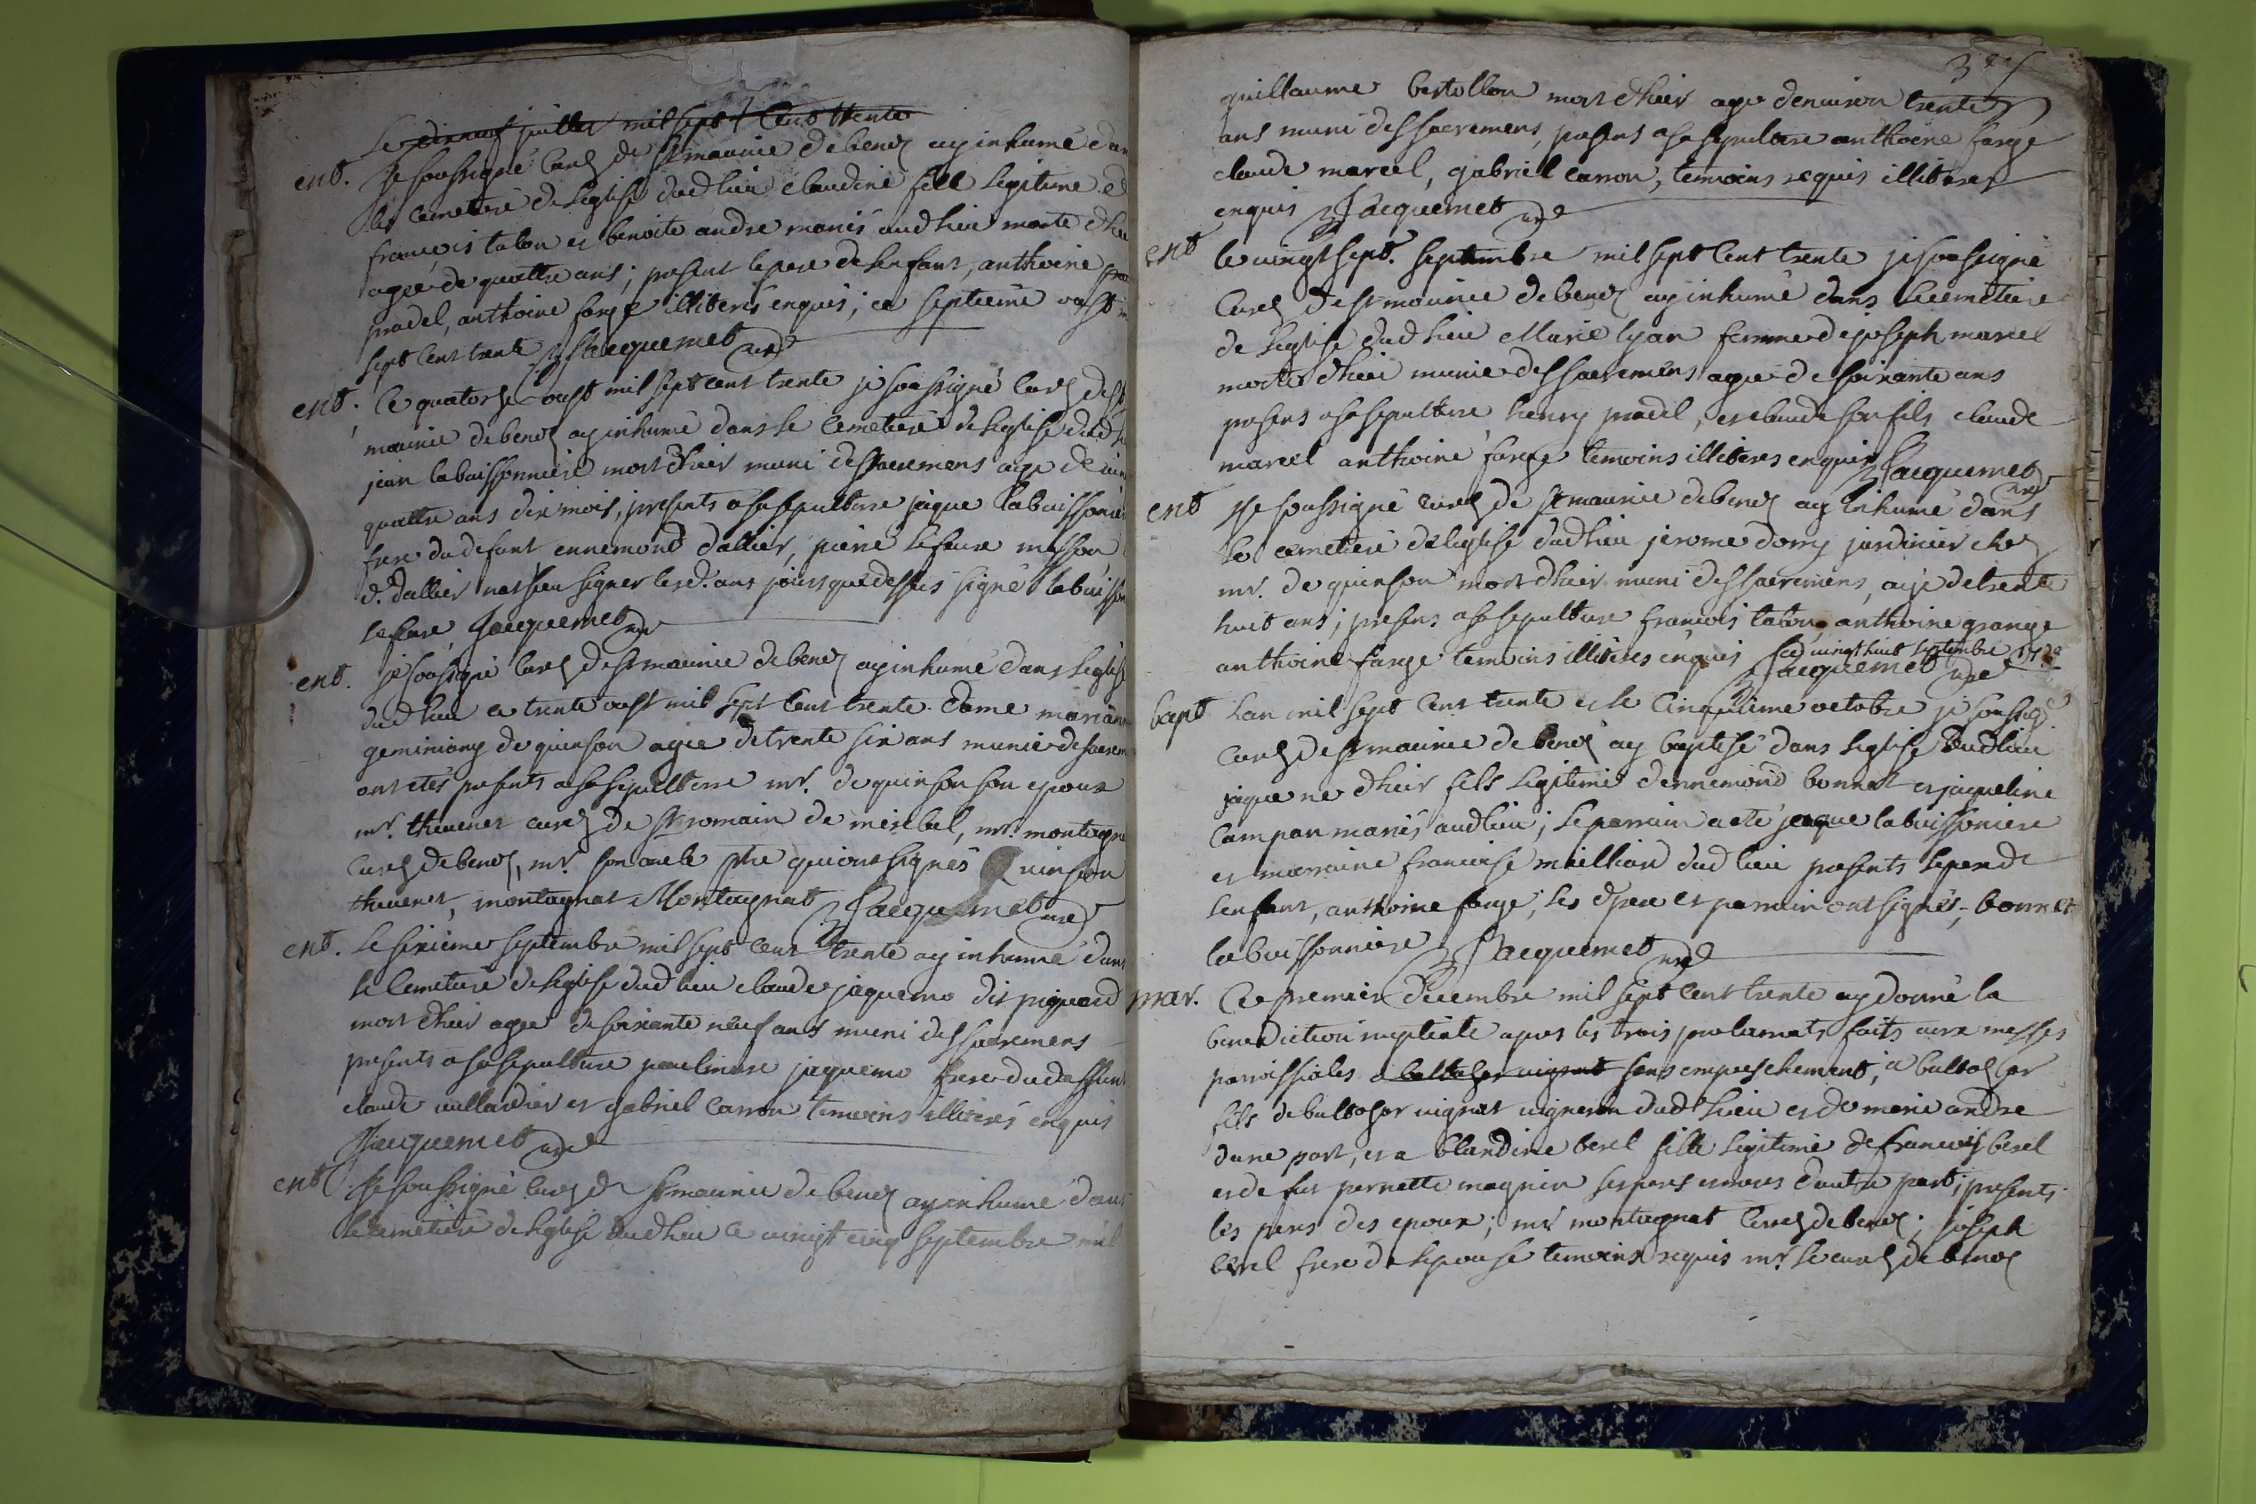 Le dix neuf juillet mil sept cent trente
ent. Je soussigné curé de St maurice de benoz ay inhumé dan
le cemetiere de leglise dud lieu claudine fille legitime de
françois talon et benoite andre mariés aud lieu morte dhie
agée de quattre ans; present le pere de lenfant, anthoine
pradel, anthoine farge illiteres enquis; ce septieme aoust m
sept cent trente Jacquemet curé
ent. Le quatorze oust mil sept cent trente je soussigné curé de St
maurice de benoz ay inhumé dans le cemetiere de leglise dud l
jean labuissonniere mort dhier muni des sacremens agé de
quattre ans dix mois, presents a sa sepulture jaque labuissonie
frere du defunt ennemond dallier, pierre lefevre masson
d. dallier na sceu signer les d. ans jours que dessus signé labuisson
lefevre, Jacquemet curé
ent. je soussigné curé de St maurice de benoz ay inhumé dans leglise
dud lieu ce trente oust mil sept cent trente. dame mariann
geminiany de quinson agée de trente six ans munie de sacrem
ont etés presents a sa sepulture mr. de quinson son epoux
mr. thevenet curé de St romain de miribel, mr. montagna
curé de benoz, mr. son oncle ptre qui ont signés Quinson
thevenet, montagnat Montagnat Jacquemet curé
ent. Le sixieme septembre mil sept cent trente ay inhumé dans
le cemetiere de leglise dud lieu claude jaquemo dit piquand
mort dhier agée de soixante neuf ans muni des sacremens
presents a sa sepulture jaquemo frere du deffunt
claude vuillardier et gabriel carron temoins illiterés enquis
Jacquemet curé
ent. Je soussigné curé de St maurice de benoz ay inhumé dans
le cemetiere de leglise dud lieu ce vingt cinq septembre mil
guillaume bertollon mort dhier agé denviron trente
ans muni des sacremens, presens a sa sepulture anthoine farge
claude marcel, gabriel carron, temoins requis illiteres
enquis Jacquemet curé
ent le vingt sept. septembre mil sept cent trente je soussigné
curé de St maurice de benoz ay inhumé dans le cemetiere
de leglise dud lieu Marie lyan femme de joseph marcel
morte dhier munie des sacremens agée de soixante ans
presens a sa sepulture henry pradel, et claude son fils claude
marcel anthoine farge temoins illiteres enquis Jacquemet
curé
ent Je soussigné curé de St maurice de benoz ay inhumé dans
le cemetiere de leglise dud lieu jerome domy jardinier chez
mr. de quinson mort dhier muni des sacremens, agé de trente
huit ans; presens a sa sepulture francois talon anthoine grange
anthoine farge temoins illiteres enquis ce vingt huit septembre 1730
Jacquemet curé
bapt Lan mil sept cent trente et le cinquieme octobre je soussigé
curé de St maurice de benoz ay baptisé dans leglise dud lieu
jaque né dhier fils legitime dennemond bonnet et jaqueline
campan mariés aud lieu; le parrain a eté jaque labuissoniere
et marraine francoise meilliard dud lieu presents le pere de
lenfant, anthoine farge; les d pere et parrain ont signés; bonnet
labuissonniere Jacquemet curé
mar. Le premier decembre mil sept cent trente ay donné la
benediction nuptiale apres les trois proclamats faits aux messes
parroissiales a baltazar vignat sans empeschement, a baltazar
fils de baltazar vignat vigneron dud lieu et de marie andre
dune part, et a blandine berel fille legitime de francois berel
et de fue pernette magnin ses peres et meres dautre part; presents
les peres des epoux; mr montagnat curé de benoz; joseph
berel frere de lepouse temoins requis mr. le curé de benoz